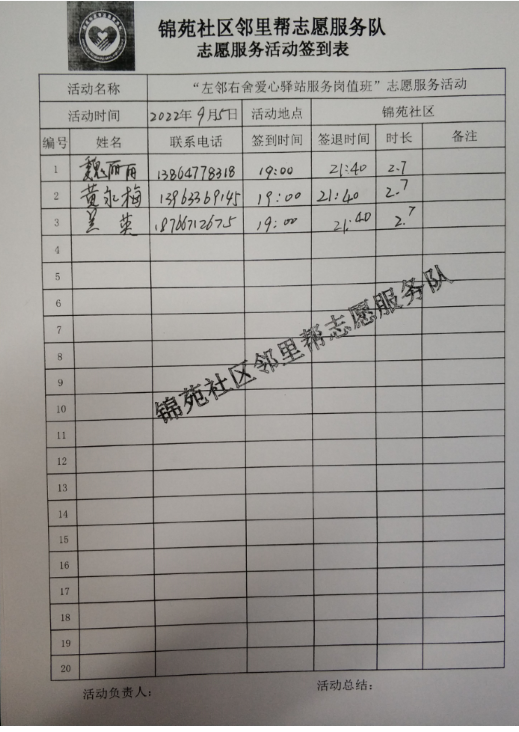 锦苑社区邻里帮志愿服务队
志愿服务活动签到表
活动名称 “左邻右舍爱心驿站服务岗值班”志愿服务活动
活动时间 2022年9月5日 活动地点 锦苑社区
编号 姓名 联系电话 签到时间 签退时间 时长 备注
1 魏丽丽 13864778318 19:00 21:40 2.7
2 黄永梅 13963369145 19:00 21:40 2.7
3 兰英 18766712675 19:00 21:40 2.7
4
5
6
7
8
9
10
11
12
13
14
15
16
17
18
19
20
锦苑社区邻里帮志愿服务队
活动负责人： 活动总结：